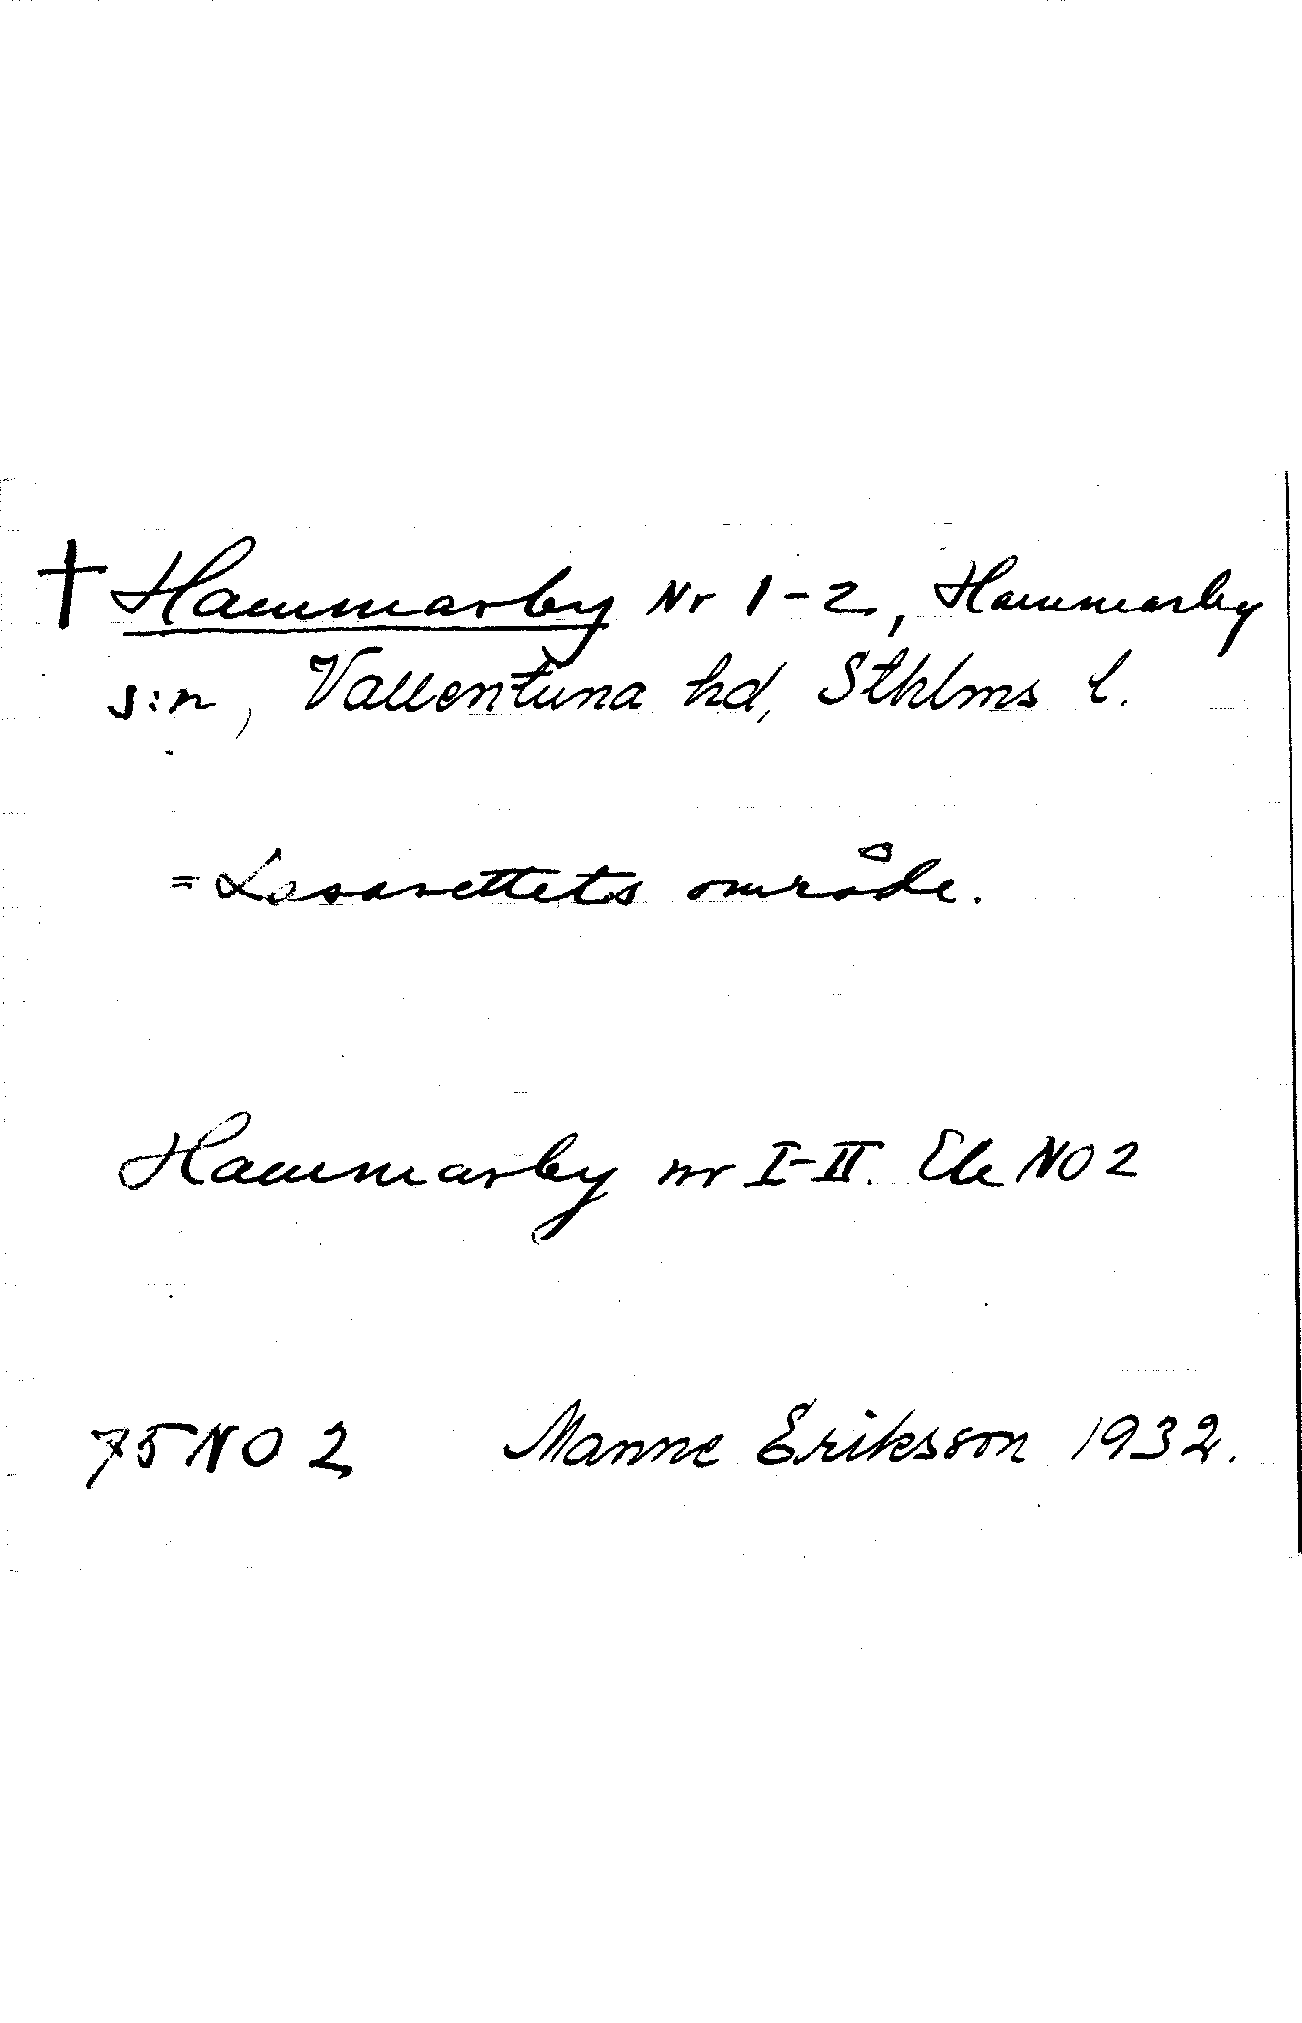 † Hammarby Nr 1-2, Hammarby
s:n, Vallentuna hd, Sthlms l.
= Lasarettets område.
Hammarby nr I-II. Ek NO 2
75 NO 2 Manne Eriksson 1932.